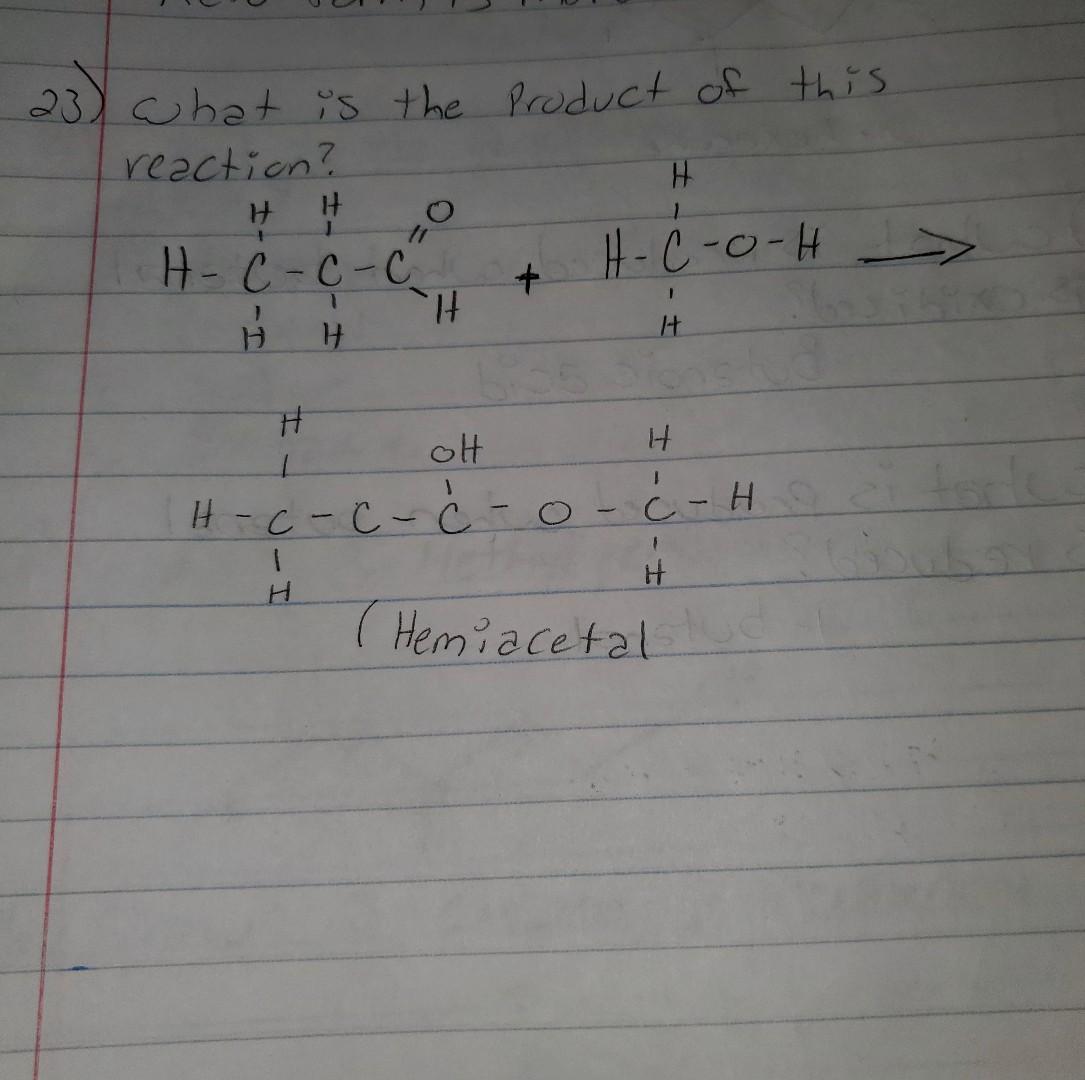 23) What is the Product of this
reaction?
H H O
H - C - C - C + H - C - O - H →
H
H H H H
H
OH H
H - C - C - C - O - C - H
H H
(Hemiacetal